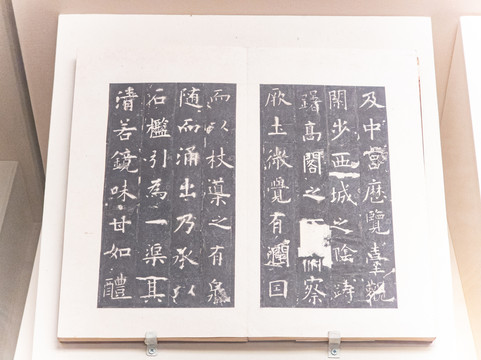 及中宮歷覽臺觀
閑步西城之陰躊
躇高閣之察
厥土微覺有潤因
而以杖導之有泉
随而涌出乃承以
石檻引為一渠其
清若鏡味甘如醴